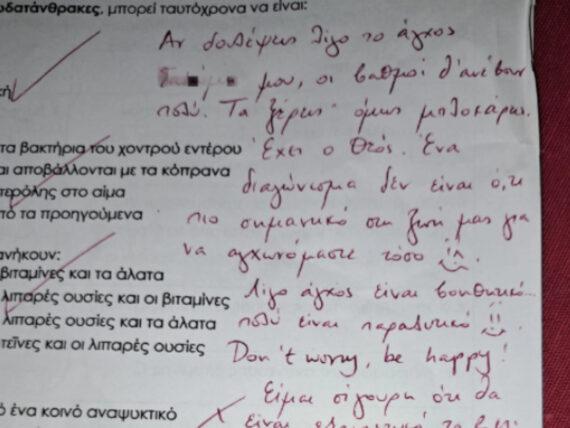 δατάνθρακες, μπορεί ταυτόχρονα να είναι:
Αν δουλέψεις λίγο το άγχος
μου, οι βαθμοί θ' ανέβουν
κή
πολύ. Τα ξέρεις όμως μπλοκάρεις.
τα βακτήρια του χοντρού εντέρου
Έχει ο Θεός. Ένα
αι αποβάλλονται με τα κόπρανα
διαγώνισμα δεν είναι ό,τι
τερόλης στο αίμα
πό τα προηγούμενα
πιο σημαντικό στη ζωή μας για
να αγχωνόμαστε τόσο
ανήκουν:
βιταμίνες και τα άλατα
λιπαρές ουσίες και οι βιταμίνες
λίγο άγχος είναι βοηθητικό...
λιπαρές ουσίες και τα άλατα
πολύ είναι παραλυτικό !!
τεΐνες και οι λιπαρές ουσίες
Don't worry, be happy!
Είμαι σίγουρη ότι θα
ό ένα κοινό αναψυκτικό
είναι